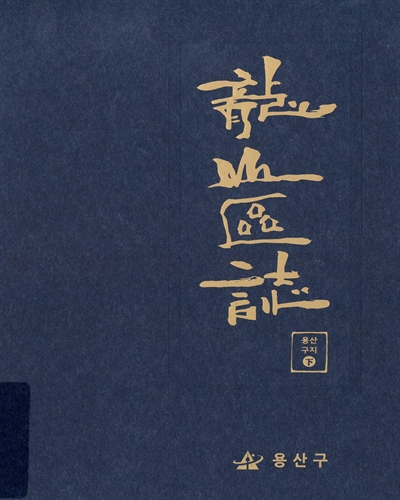 龍山區誌
용산
구지
下
용산구